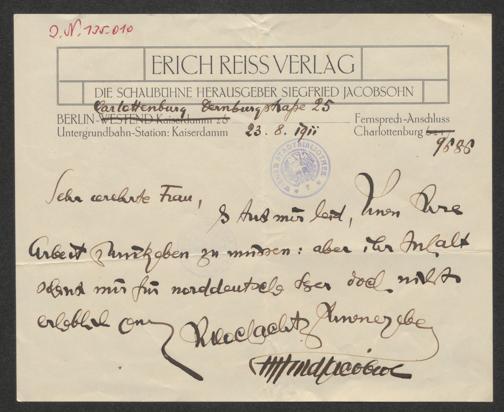 J. N. 125.010
ERICH REISS VERLAG
DIE SCHAUBÜHNE HERAUSGEBER SIEGFRIED JACOBSOHN
Carlottenburg Dernburgstraße 25
BERLIN-WESTEND Kaiserdamm 26 Fernsprech-Anschluss
Untergrundbahn-Station: Kaiserdamm 23.8.1911 Charlottenburg
9686
Sehr verehrte Frau,
es tut mir leid, Ihnen Ihre
Arbeit zurückgeben zu müssen: aber ihr Inhalt
scheint mir für norddeutsche Leser doch nicht
erheblich genug
Hochachtungsvoll ergeben
Siegfried Jacobsohn